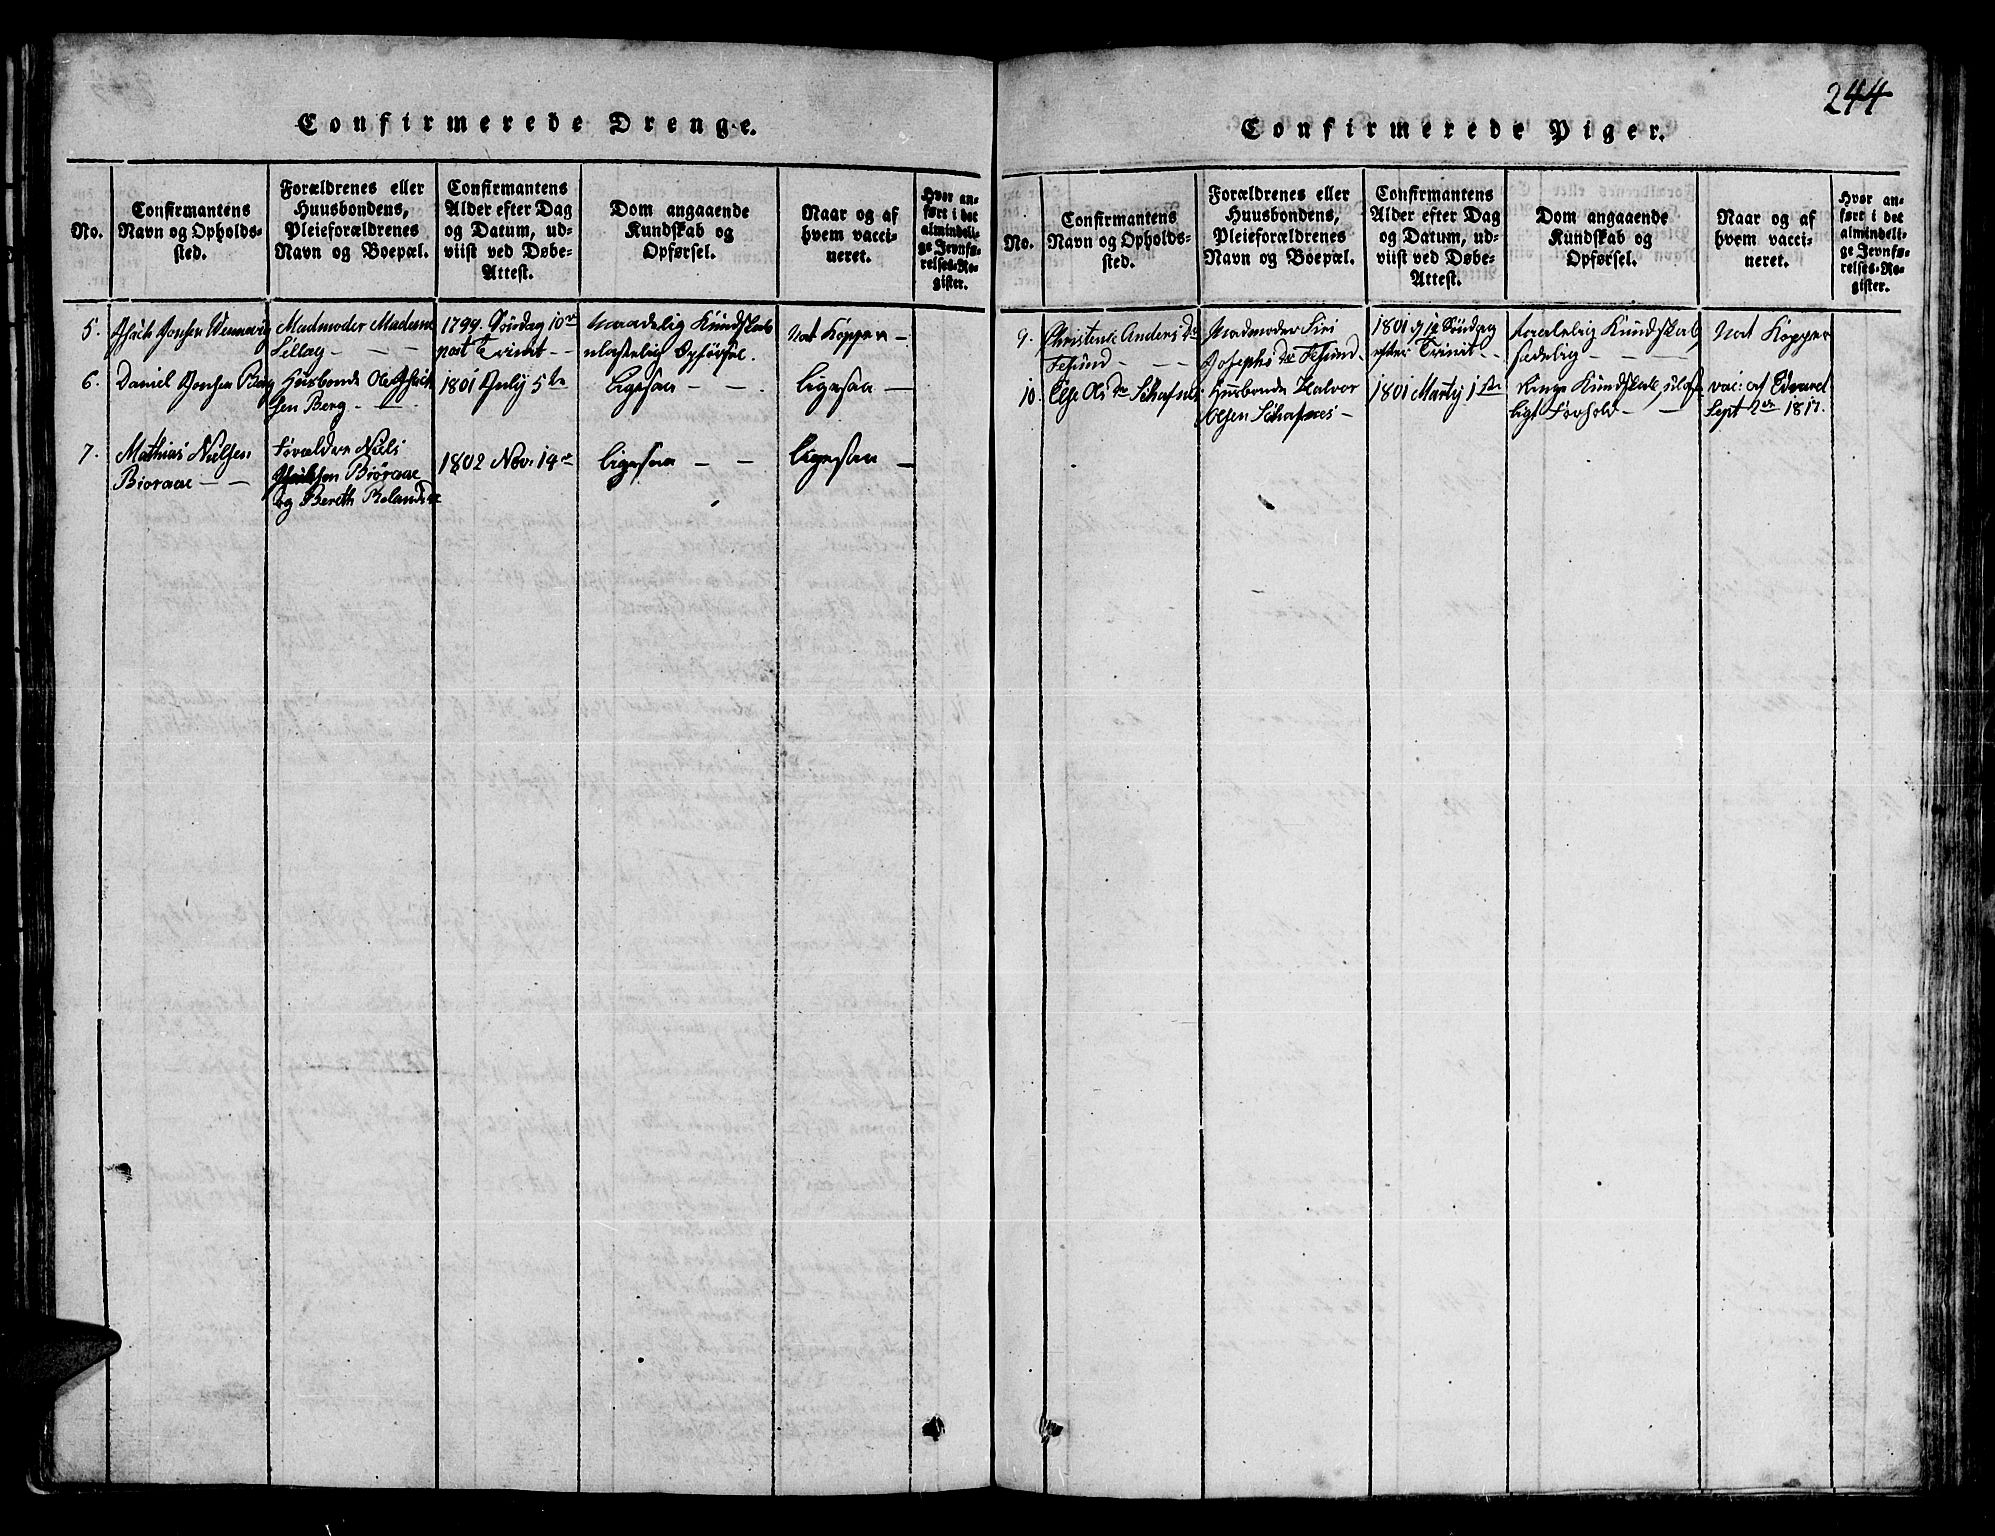 244
Confirmerede Drenge.
No.
Confirmantens
Navn og Opholds-
sted.
Forældrenes eller
Huusbondens,
Pleieforældrenes
Navn og Boepæl.
Confirmantens
Alder efter Dag
og Datum, ud-
viist ved Døbe-
Attest.
Dom angaaende
Kundskab og
Opførsel.
Naar og af
hvem vacci-
neret.
Hvor an-
ført i det
almindeli-
ge Jevnfø-
relses-Re-
gister.
5.
Jonsen
Madmoder Madame
1799. Søndag 10de
post Trinit -
Maadelig Kundskab
Opførsel.
havt Kopper -
6.
Daniel Jonsen Berg
Huusbonde Ole
sen Berg -
1801 July 5te
Ligesaa -
Ligesaa -
7.
Mathias Nielsen
Bioraae -
Forældre Niels
Bioraae
og Bereth
1802 Nov: 14de
Ligesaa -
Ligesaa -
Confirmerede Piger.
No.
Confirmantens
Navn og Opholds-
sted.
Forældrenes eller
Huusbondens,
Pleieforældrenes
Navn og Boepæl.
Confirmantens
Alder efter Dag
og Datum, ud-
viist ved Døbe-
Attest.
Dom angaaende
Kundskab og
Opførsel.
Naar og af
hvem vacci-
neret.
Hvor an-
ført i det
almindeli-
ge Jevnfø-
relses-Re-
gister.
9.
Christense Anders Dr
Tesund -
Madmoder Siri
Josephs Dr Tesund -
1801 Søndag
efter Trinit -
Kundskab,
sædelig -
havt Kopper
10.
Else Ols Dr
Huusbonde Halvor
Olsen
1801 Marty 1ste
Ringe Kundskab,
ligt Forhold -
vac: af Edvard
Sept 1817.